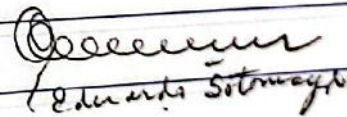 Eduardo Sotomayor